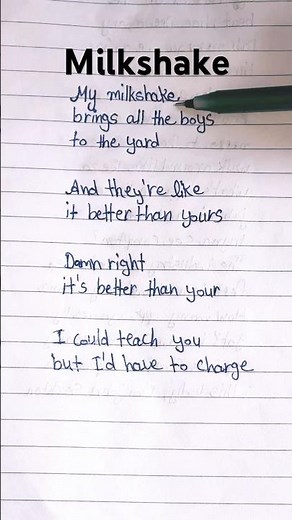 Milkshake
My milkshake
brings all the boys
to the yard
And they're like
it better than yours
Damn right
it's better than your
I could teach you
but I'd have to charge